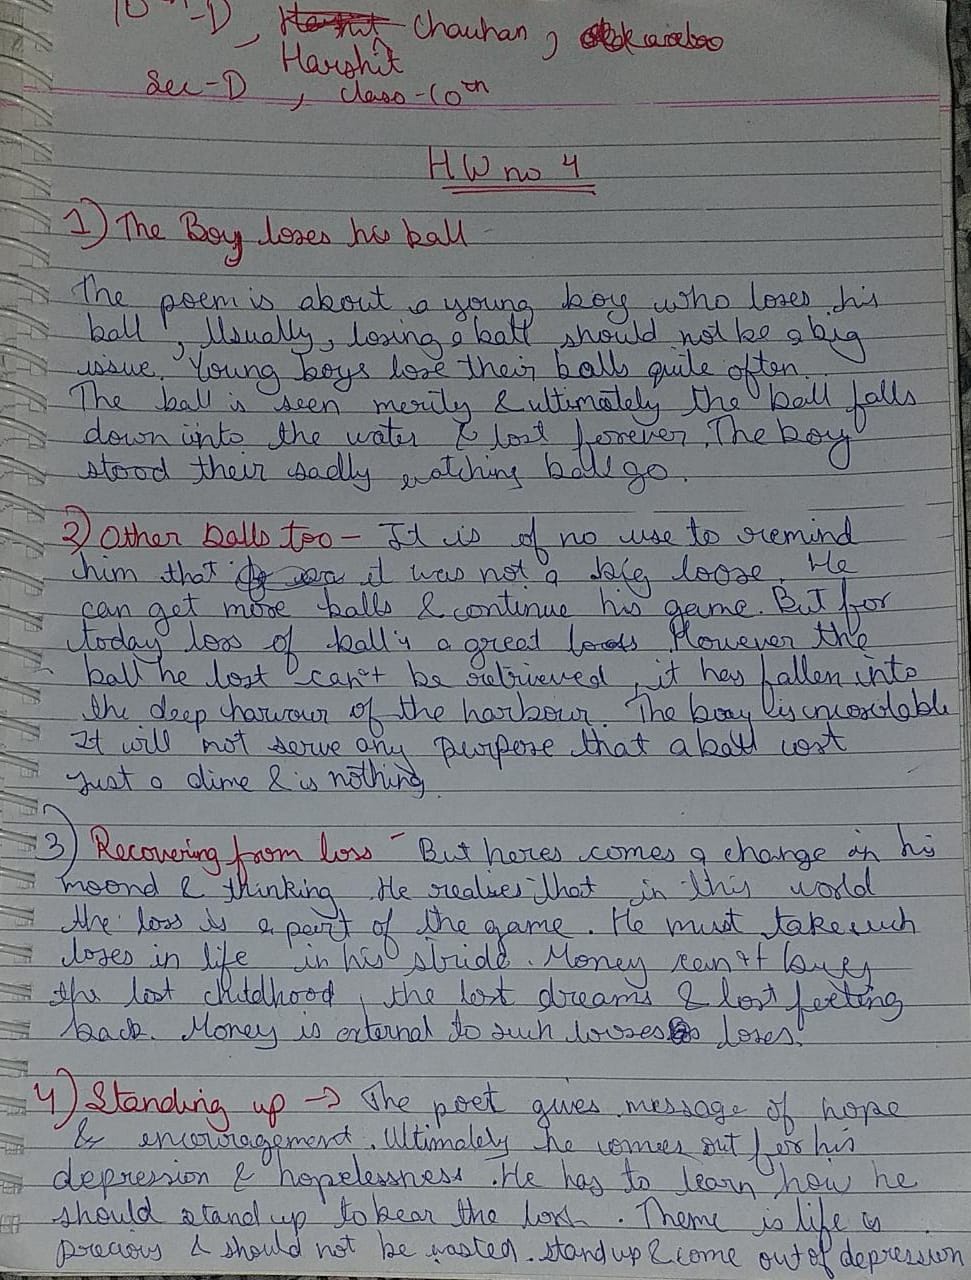 -D, Chauhan,
Harshit
Sec-D, class-10th
HW no 4
1) The Boy loses his ball
The poem is about a young boy who loses his
ball, Usually, losing a ball should not be a big
issue. Young boys lose their balls quite often.
The ball is seen merily & ultimately the ball falls
down into the water & lost forever. The boy
stood their sadly watching ball go.
2) Other balls too - It is of no use to remind
him that it was not a big loose. He
can get more balls & continue his game. But for
today loss of ball is a great loss. However the
ball he lost can't be retrieved, it has fallen into
the deep harwour of the harbour. The boy is
It will not serve any purpose that a ball cost
just a dime & is nothing.
3) Recovering from loss - But heres comes a change in his
moond & thinking. He realises that in this world
the loss is a part of the game. He must take such
loses in life in his stride. Money can't buy
the lost childhood, the lost dreams & lost feeling
back. Money is external to such loses.
4) Standing up → The poet gives message of hope
& encouragement. Ultimately he comes out for his
depression & hopelessness. He has to learn how he
should stand up to bear the loss. Theme is life is
precious & should not be wasted. stand up & come out of depression